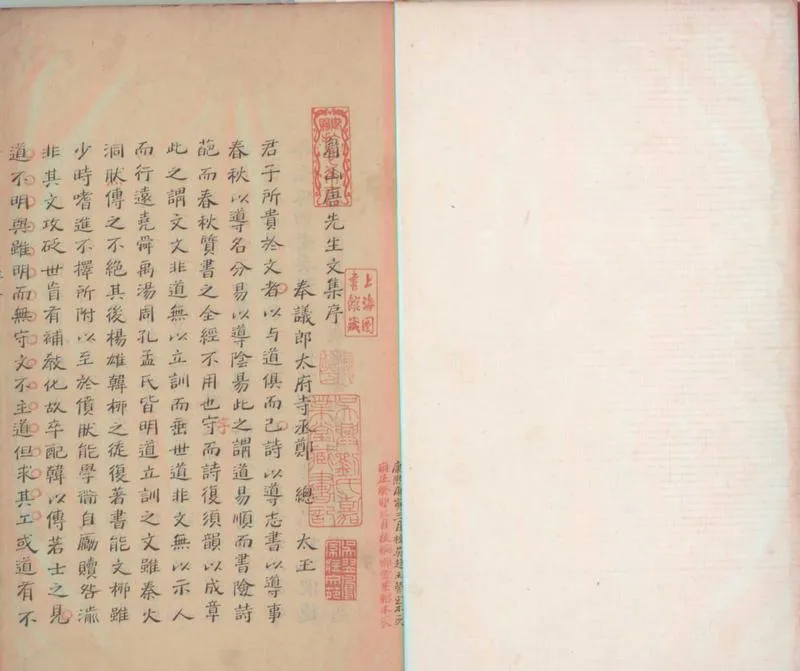 眉山唐先生文集序
奉議郎太府寺丞鄭 總 太玉
君子所貴於文者以与道俱而已詩以導志書以導事
春秋以導名分易以導陰昜此之謂道易順而書險詩
葩而春秋質書之全經不用也守而詩復須韻以成章
字
此之謂文文非道無以立訓而垂世道非文無以示人
而行遠堯舜禹湯周孔孟氏皆明道立訓之文雖秦火
洞肰傳之不絕其後楊雄韓桺之徒復著書能文桺雖
少時嗜進不擇所附以至於僨肰能學術自勵贖咎湔
非其文攻砭世盲有補敎化故卒配韓以傳若士之見
道不明與雖明而無守文不主道但求其工或道有不
上海圖
書館藏
吳興劉氏嘉
業堂藏書記